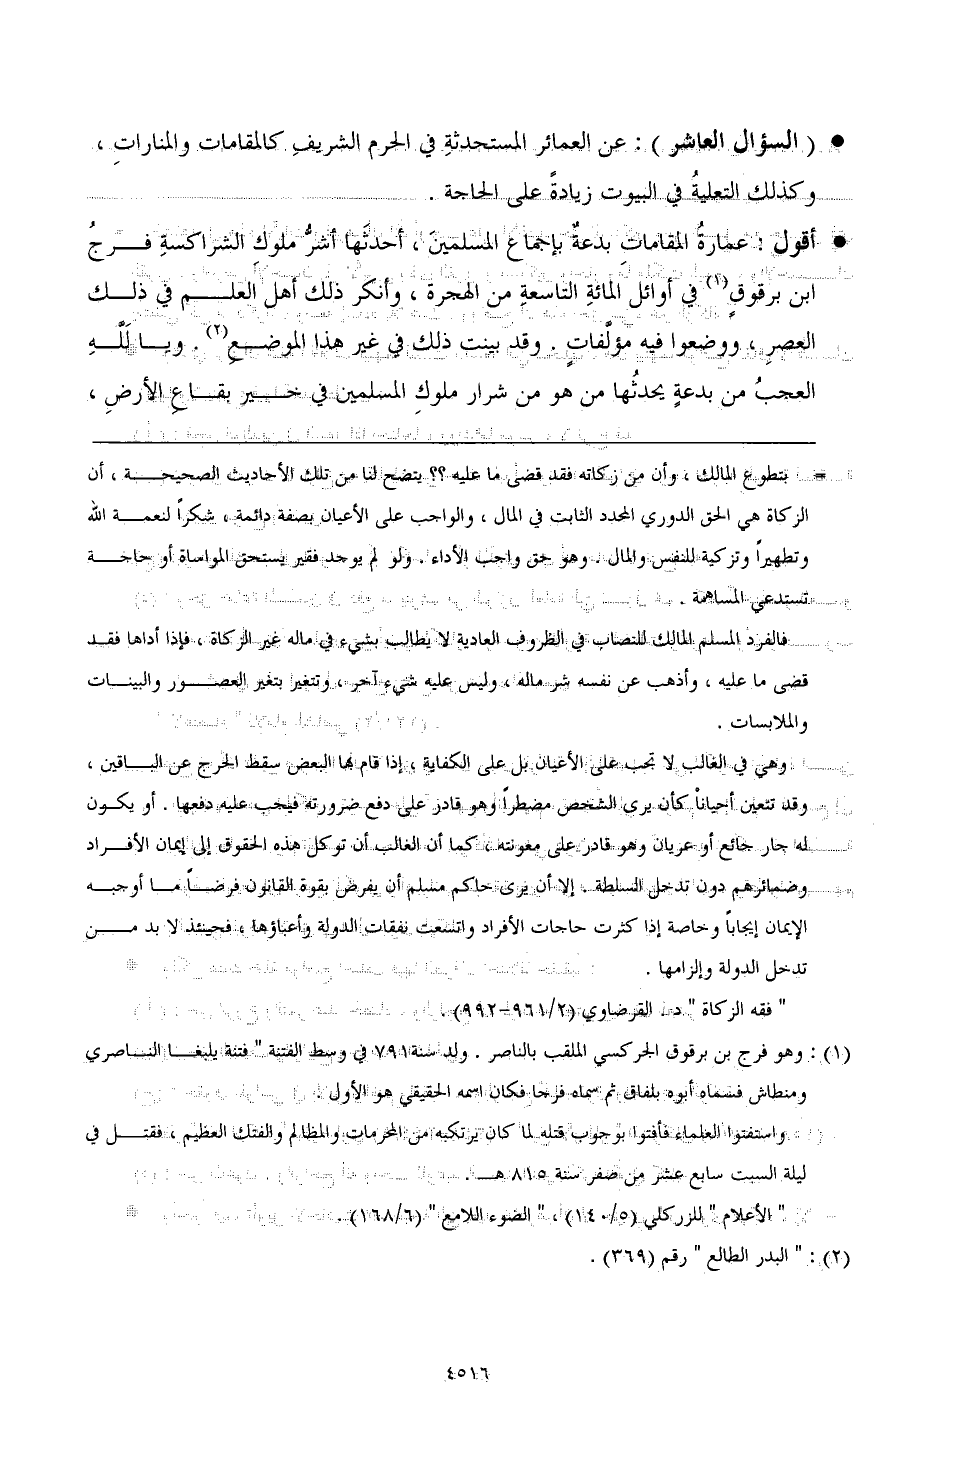 ● ( السؤال العاشر ) : عن العمائر المستحدثةِ في الحرم الشريفِ كالمقامات والمنارات ،
وكذلك التعليةُ في البيوت زيادةً على الحاجة .
● أقول : عمارةُ المقاماتِ بدعةٌ بإجماع المسلمينَ ، أحدثَها أشرُّ ملوكِ الشراكسةِ فـــرجُ
ابن برقوقٍ(١) في أوائل المائةِ التاسعةِ من الهجرة ، وأنكر ذلك أهل العلــــم في ذلـــك
العصرِ ، ووضعوا فيه مؤلَّفاتٍ . وقد بينت ذلك في غير هذا الموضــعِ(٢) . ويــا لَلَّـــهِ
العجبُ من بدعةٍ يحدثُها من هو من شرار ملوكِ المسلمين في خـــير بقـــاعِ الأرضِ ،
= بتطوع المالك ، وأن من زكاته فقد قضى ما عليه ؟؟ يتضح لنا من تلك الأحاديث الصحيحـــة ، أن
الزكاة هي الحق الدوري المحدد الثابت في المال ، والواجب على الأعيان بصفة دائمة ، شكراً لنعمـــة الله
وتطهيراً وتزكية للنفس والمال . وهو حق واجب الأداء . ولو لم يوجد فقير يستحق المواساة أو حاجـــة
تستدعي المساهمة .
فالفرد المسلم المالك للنصاب في الظروف العادية لا يطالب بشيء في ماله غير الزكاة ، فإذا أداها فقـــد
قضى ما عليه ، وأذهب عن نفسه شر ماله ، وليس عليه شيء آخر ، وتتغير بتغير العصـــور والبيئـــات
والملابسات .
وهي في الغالب لا تجب على الأعيان بل على الكفاية ، إذا قام بها البعض سقط الحرج عن البـــاقين ،
وقد تتعين أحياناً كأن يرى الشخص مضطراً وهو قادر على دفع ضرورته فيجب عليه دفعها . أو يكون
له جار جائع أو عريان وهو قادر على معونته ، كما أن الغالب أن توكل هذه الحقوق إلى إيمان الأفـــراد
وضمائرهم دون تدخل السلطة . إلا أن يرى حاكم مسلم أن يفرض بقوة القانون فرضـــاً مـــا أوجبـــه
الإيمان إيجاباً وخاصة إذا كثرت حاجات الأفراد واتسعت نفقات الدولة وأعباؤها ، فحينئذ لا بد مـــن
تدخل الدولة وإلزامها .
" فقه الزكاة " د. القرضاوي (٢/٩٦١-٩٩٢) .
(١) : وهو فرج بن برقوق الجركسي الملقب بالناصر . ولد سنة ٧٩١ في وسط الفتنة " فتنة يلبغـــا النـــاصري
ومنطاش فسماه أبوه بلفاق ثم سماه فرحا فكان اسمه الحقيقي هو الأول .
واستفتوا العلماء فأفتوا بوجوب قتله لما كان يرتكبه من المحرمات والمظالم والفتك العظيم ، فقتـــل في
ليلة السبت سابع عشر من صفر سنة ٨١٥ هـــ .
" الأعلام " للزركلي (٥/١٤٠) ، " الضوء اللامع " (٦/١٦٨) .
(٢) : " البدر الطالع " رقم (٣٦٩) .
٤٥١٦